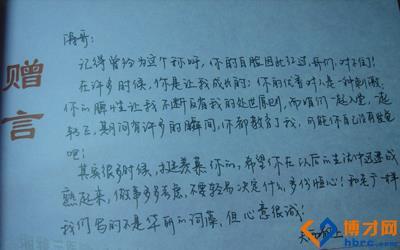 赠言
涛哥：
记得曾经为这个称呼，你的耳服因此红过，哥们，对不住！
在许多时候，你是让我成长的；你的优秀对人是一种刺激，
你的脾性让我不断反省我的处世原则，而咱们一起入党，一起
，期间有许多的瞬间，你都教了我，可能你自己没有发觉
吧！
其实很多时候，挺羡慕你的，希望你在以后的生活中迅速成
熟起来，做事多考虑，不要轻易决定什么，多份恒心！和老一样
我们写的不是华丽的词藻，但心意很诚！
博才网
hbrc.com